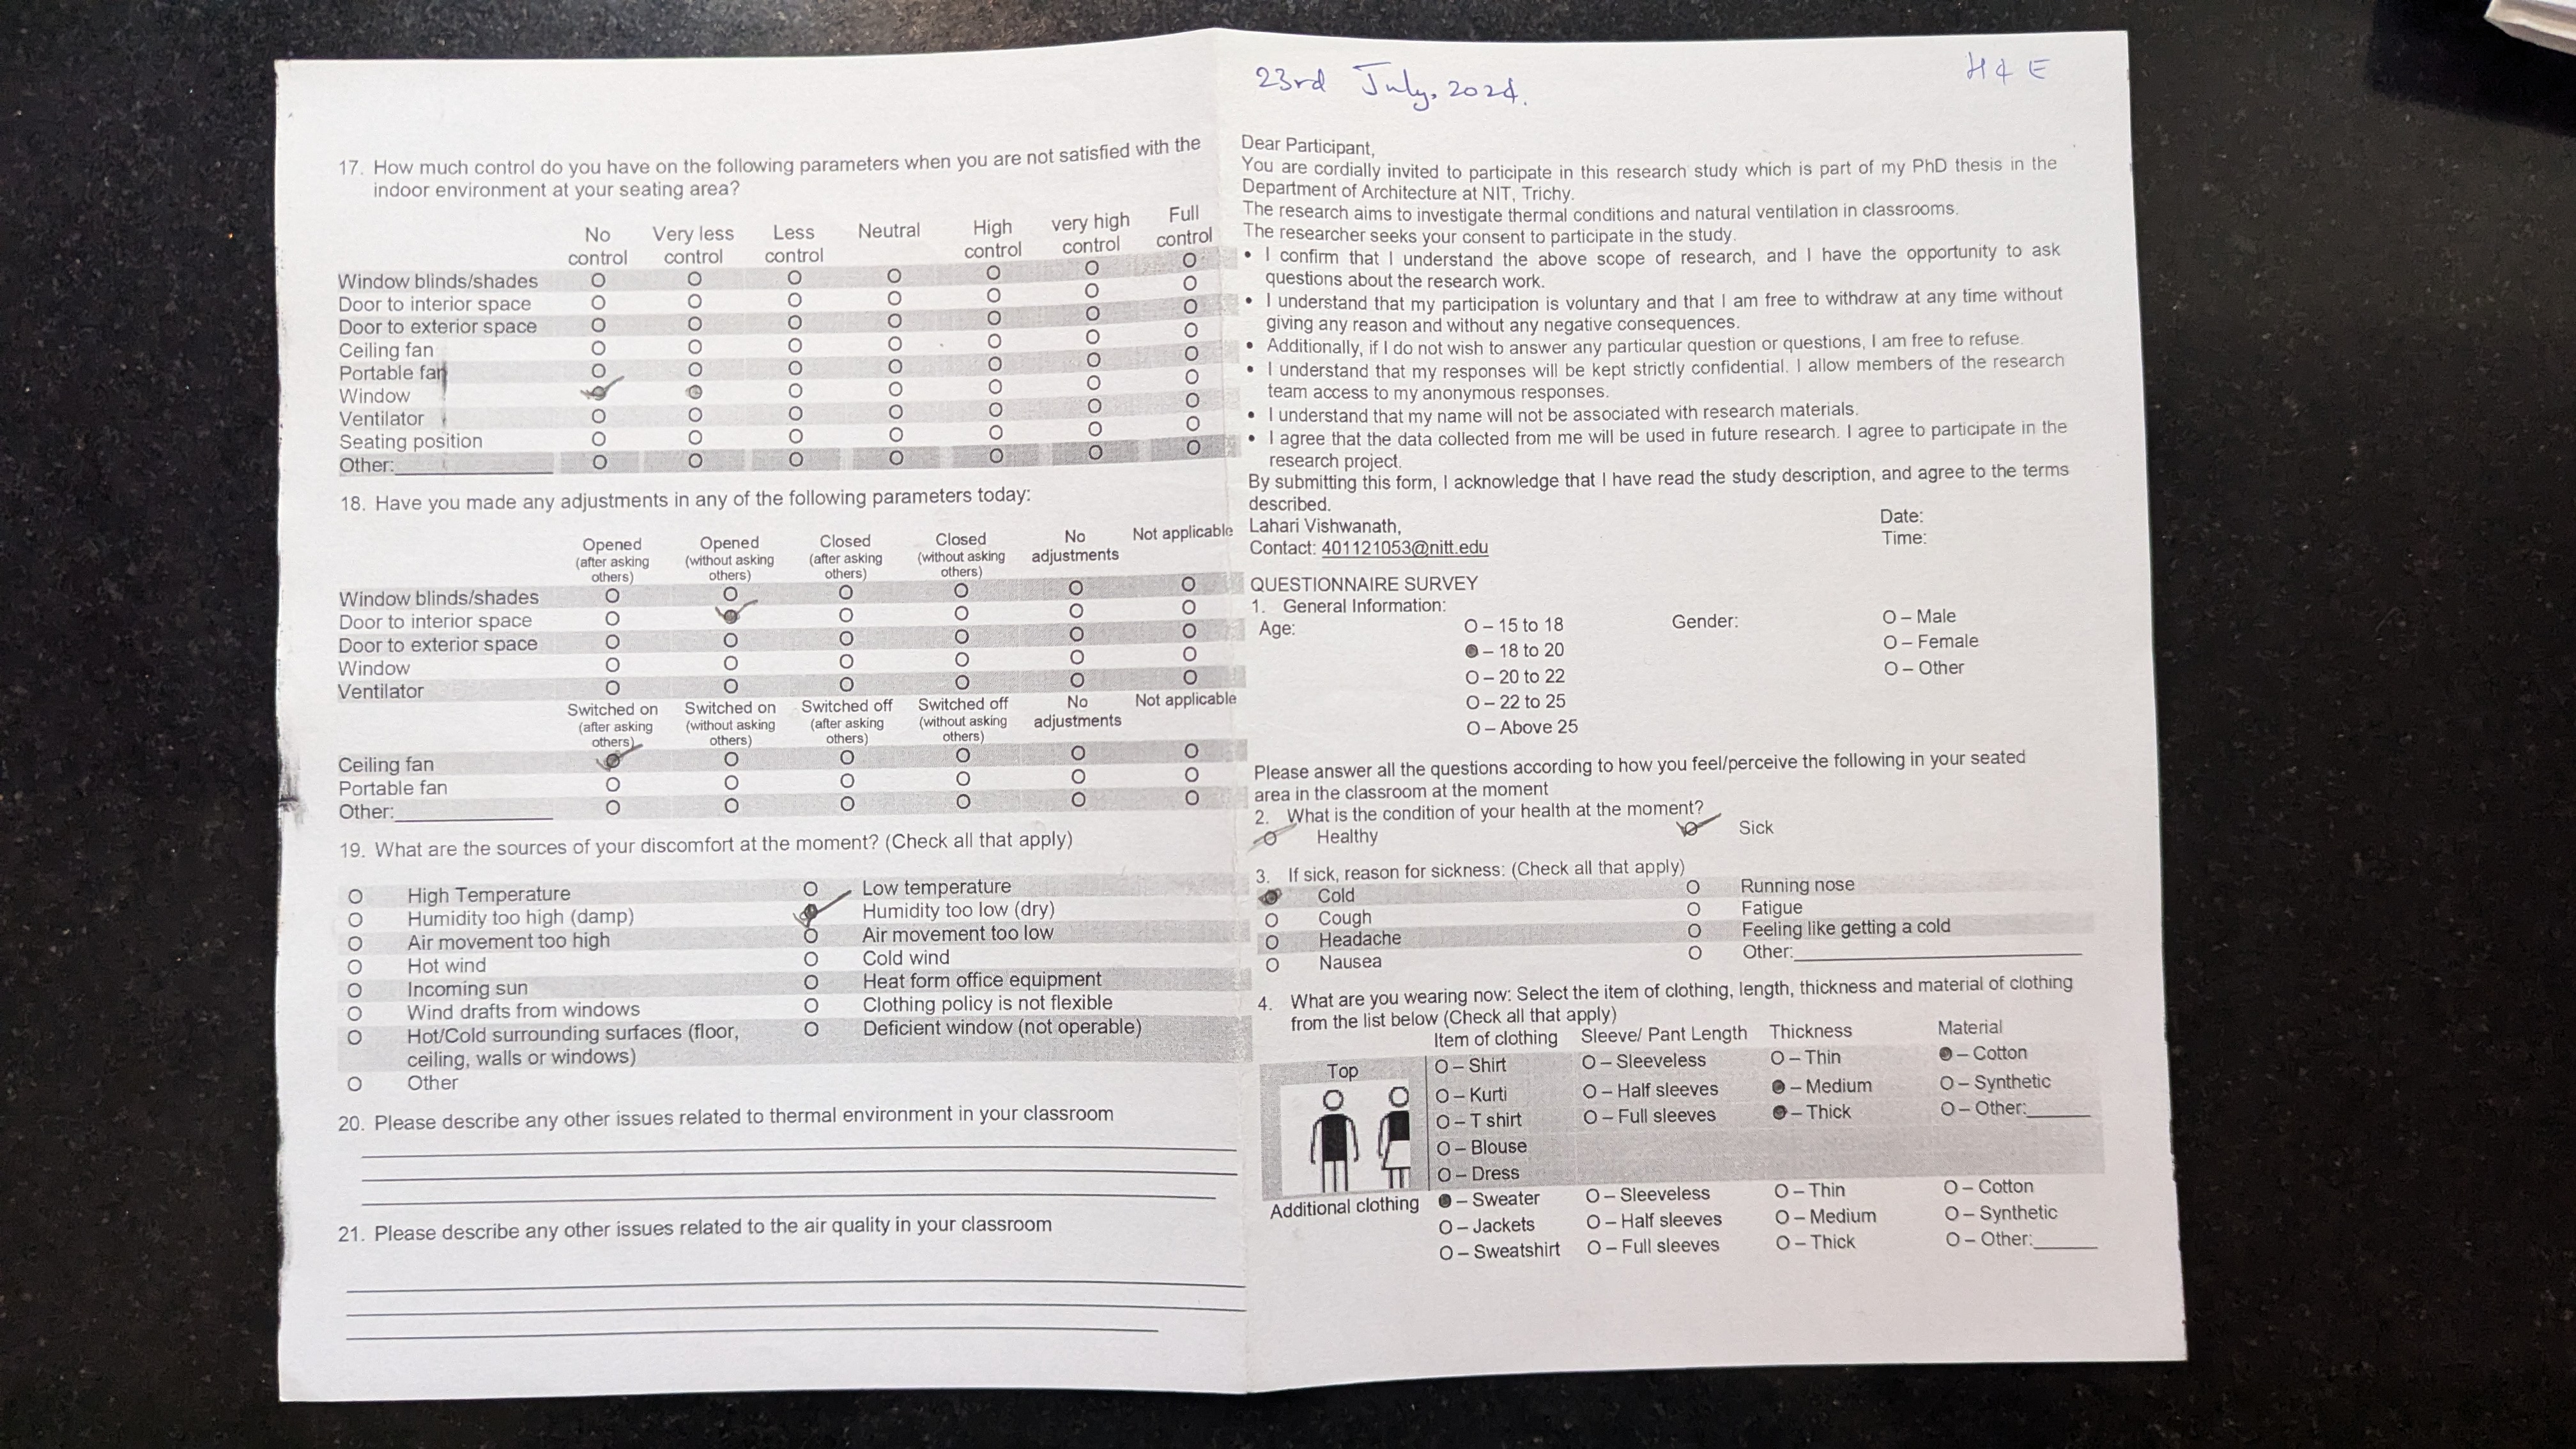 17. How much control do you have on the following parameters when you are not satisfied with the
indoor environment at your seating area?
No control Very less control Less control Neutral High control very high control Full control
Window blinds/shades O O O O O O O
Door to interior space O O O O O O O
Door to exterior space O O O O O O O
Ceiling fan O O O O O O O
Portable fan O O O O O O O
Window O O O O O O O
Ventilator O O O O O O O
Seating position O O O O O O O
Other:____________ O O O O O O O
18. Have you made any adjustments in any of the following parameters today:
Opened (after asking others) Opened (without asking others) Closed (after asking others) Closed (without asking others) No adjustments Not applicable
Window blinds/shades O O O O O O
Door to interior space O O O O O O
Door to exterior space O O O O O O
Window O O O O O O
Ventilator O O O O O O
Switched on (after asking others) Switched on (without asking others) Switched off (after asking others) Switched off (without asking others) No adjustments Not applicable
Ceiling fan O O O O O O
Portable fan O O O O O O
Other:____________ O O O O O O
19. What are the sources of your discomfort at the moment? (Check all that apply)
O High Temperature O Low temperature
O Humidity too high (damp) O Humidity too low (dry)
O Air movement too high O Air movement too low
O Hot wind O Cold wind
O Incoming sun O Heat form office equipment
O Wind drafts from windows O Clothing policy is not flexible
O Hot/Cold surrounding surfaces (floor, O Deficient window (not operable)
ceiling, walls or windows)
O Other
20. Please describe any other issues related to thermal environment in your classroom
21. Please describe any other issues related to the air quality in your classroom
23rd July, 2024.
H & E
Dear Participant,
You are cordially invited to participate in this research study which is part of my PhD thesis in the
Department of Architecture at NIT, Trichy.
The research aims to investigate thermal conditions and natural ventilation in classrooms.
The researcher seeks your consent to participate in the study.
• I confirm that I understand the above scope of research, and I have the opportunity to ask
questions about the research work.
• I understand that my participation is voluntary and that I am free to withdraw at any time without
giving any reason and without any negative consequences.
• Additionally, if I do not wish to answer any particular question or questions, I am free to refuse.
• I understand that my responses will be kept strictly confidential. I allow members of the research
team access to my anonymous responses.
• I understand that my name will not be associated with research materials.
• I agree that the data collected from me will be used in future research. I agree to participate in the
research project.
By submitting this form, I acknowledge that I have read the study description, and agree to the terms
described.
Lahari Vishwanath, Date:
Contact: 401121053@nitt.edu Time:
QUESTIONNAIRE SURVEY
1. General Information:
Age: O – 15 to 18 Gender: O – Male
● – 18 to 20 O – Female
O – 20 to 22 O – Other
O – 22 to 25
O – Above 25
Please answer all the questions according to how you feel/perceive the following in your seated
area in the classroom at the moment
2. What is the condition of your health at the moment?
O Healthy O Sick
3. If sick, reason for sickness: (Check all that apply)
● Cold O Running nose
O Cough O Fatigue
O Headache O Feeling like getting a cold
O Nausea O Other:____________
4. What are you wearing now: Select the item of clothing, length, thickness and material of clothing
from the list below (Check all that apply)
Item of clothing Sleeve/ Pant Length Thickness Material
Top O – Shirt O – Sleeveless O – Thin ● – Cotton
O – Kurti O – Half sleeves ● – Medium O – Synthetic
O – T shirt O – Full sleeves ● – Thick O – Other:______
O – Blouse
O – Dress
Additional clothing ● – Sweater O – Sleeveless O – Thin O – Cotton
O – Jackets O – Half sleeves O – Medium O – Synthetic
O – Sweatshirt O – Full sleeves O – Thick O – Other:______